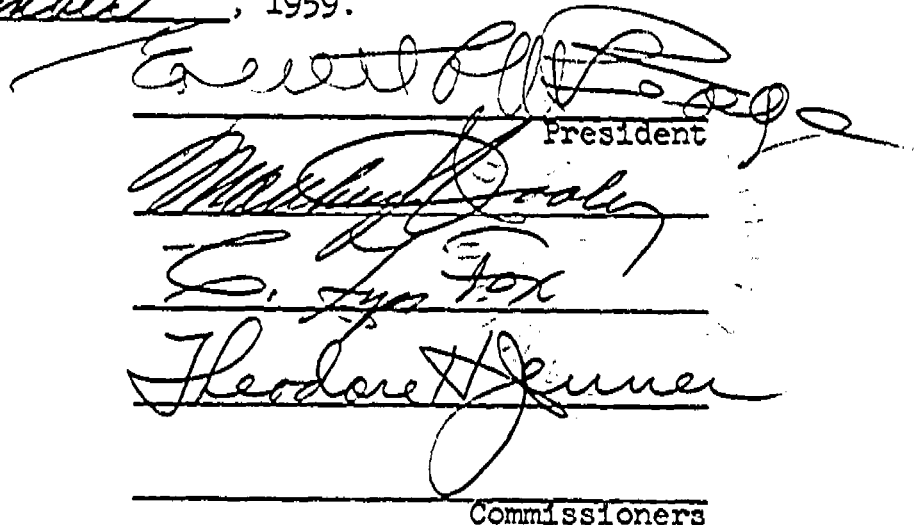 , 1959.
Everett C. McKeage
President
Matthew J. Dooley
E. Lyn Fox
Theodore H. Jenner
Commissioners